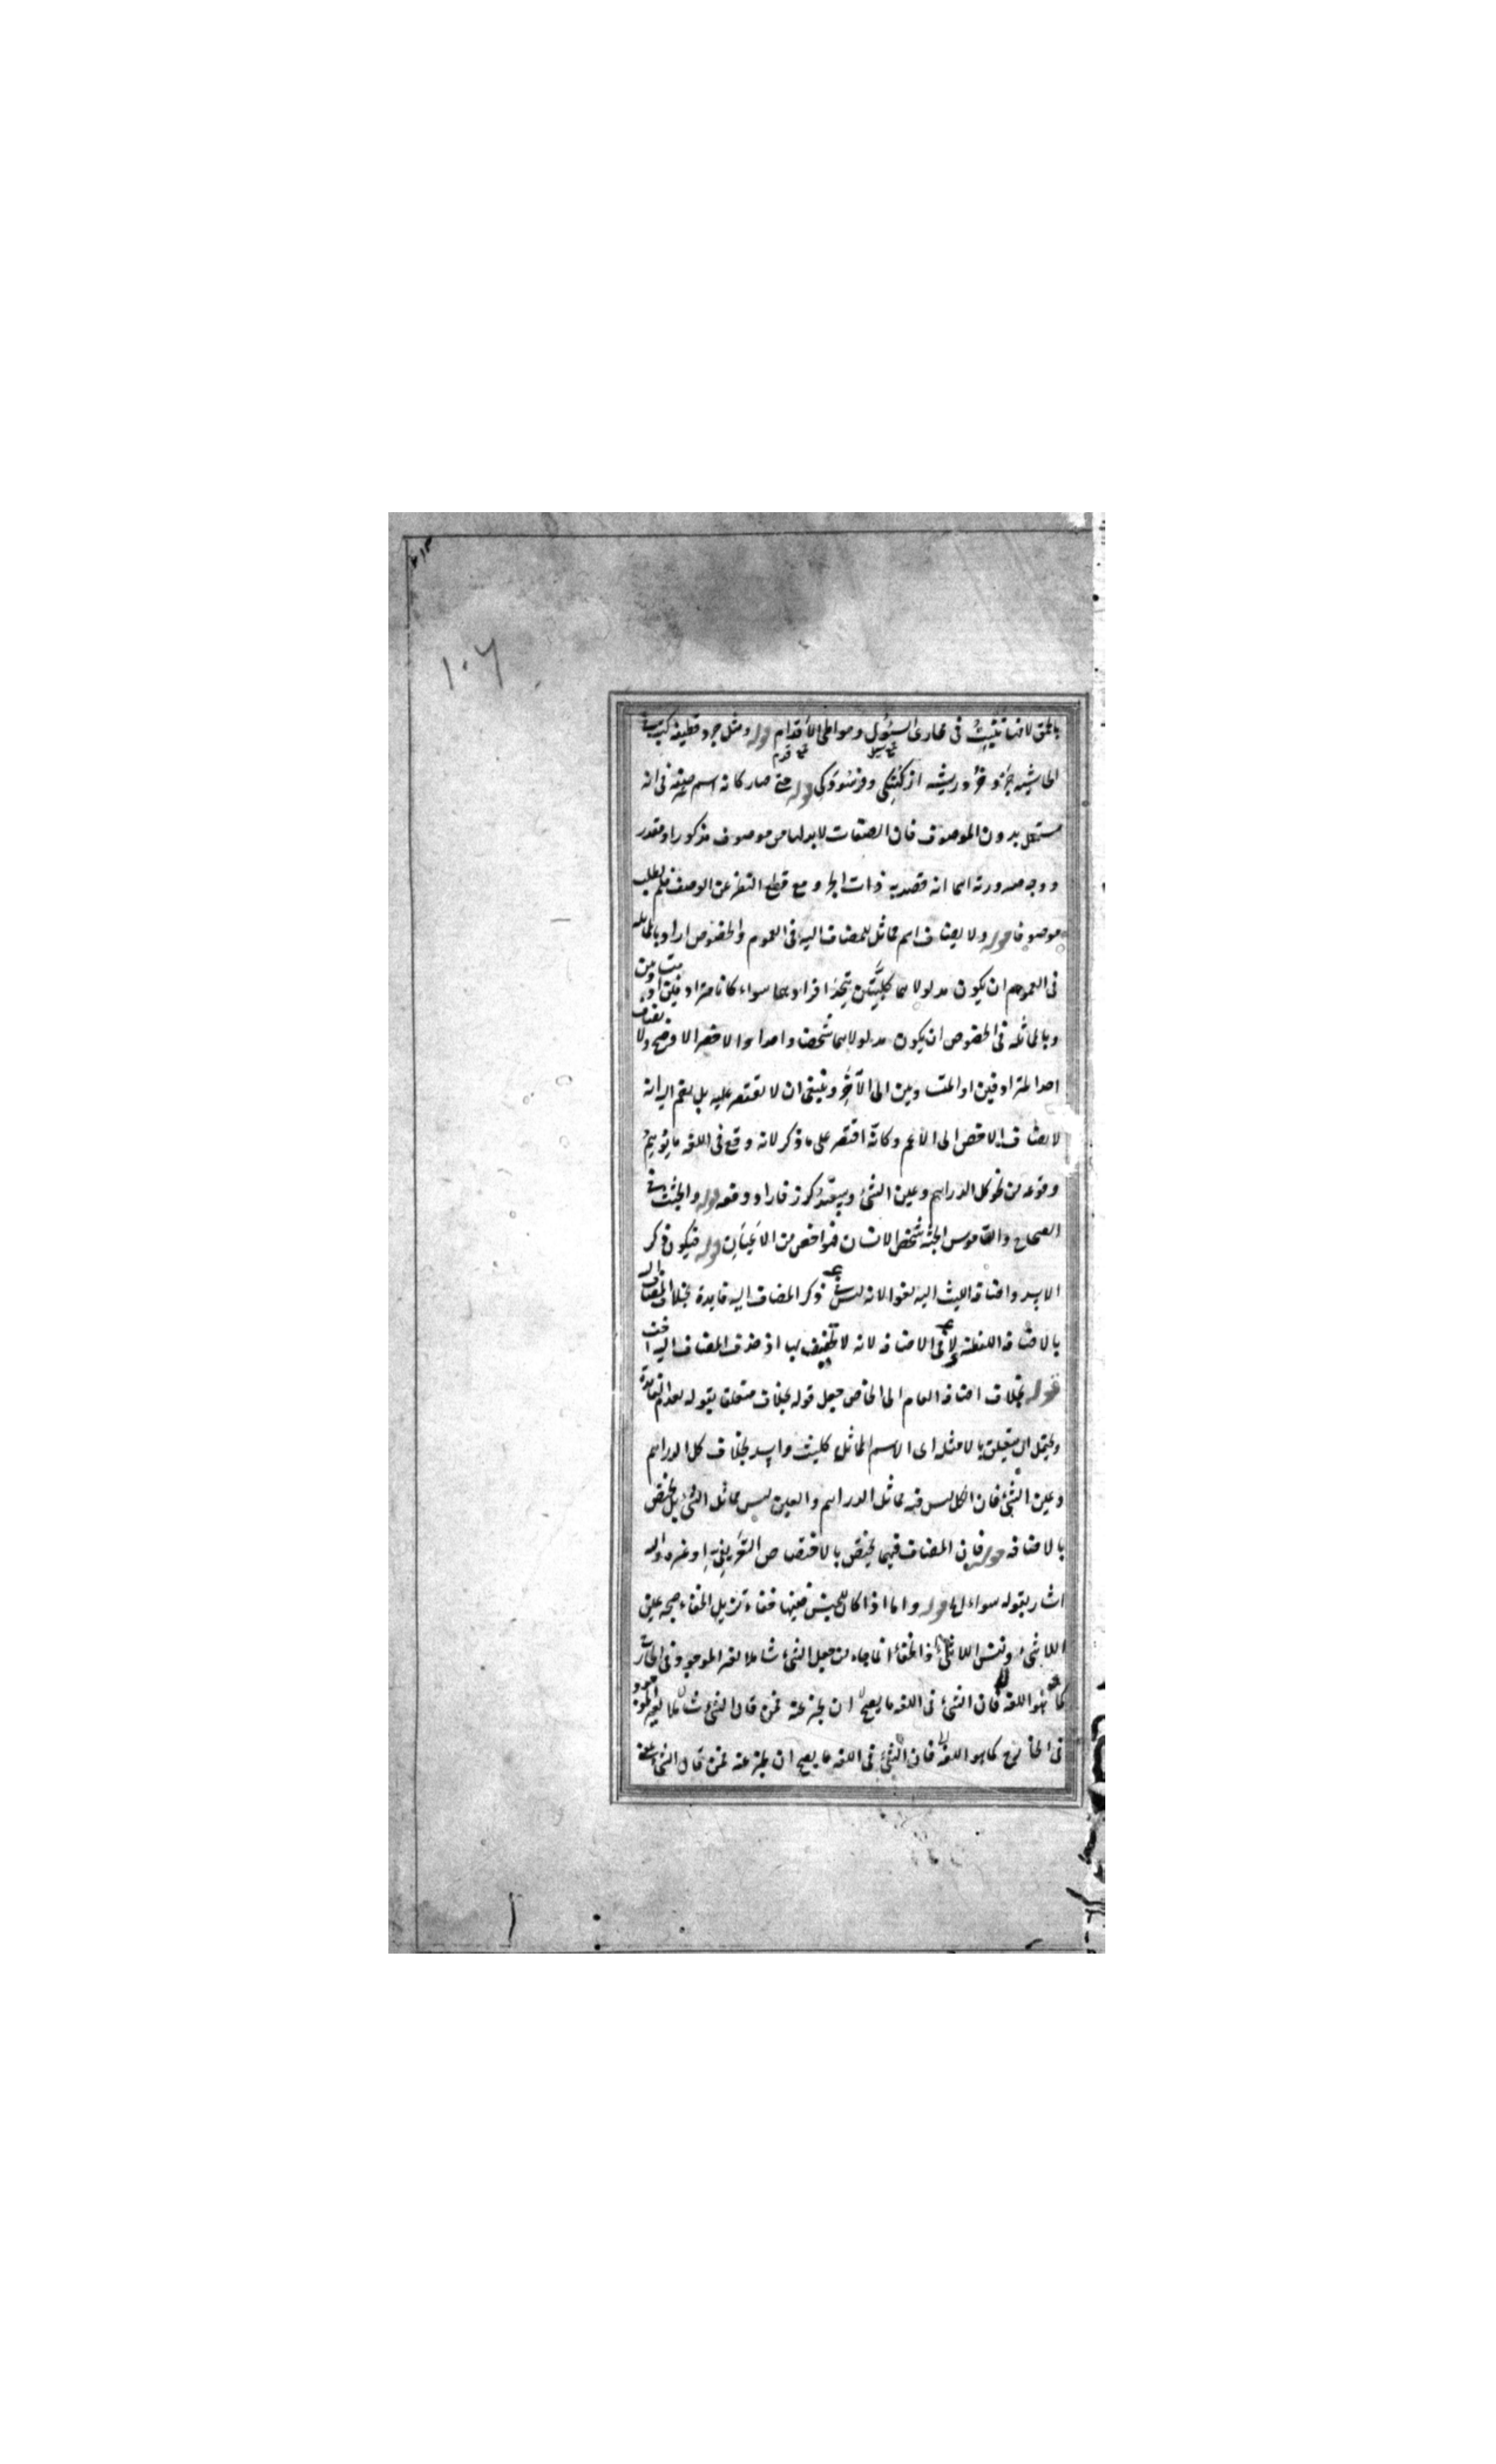 ٢١٣
١٠٦
بالحمق لانها تنبت فى مجارى السيول ومواطئ الأقدام قوله ومثل جرد قطيفة كتب فى
جمع سيل جمع قدم
الحاشية جرد وريشه از كهنگى وفرسودگى قوله حتى صار كانه اسم صفة فى انه
مستعمل بدون الموصوف فان الصفات لا بد لها من موصوف مذكور او مقدر
ووجه صيرورته اسما انه قصد به ذات الجرد مع قطع النظر عن الوصف فلم يطلب
موصوفا قوله ولا يضاف اسم مماثل للمضاف اليه فى العموم والخصوص اراد بالمماثلة
فى العموم ان يكون مدلولاهما كليين يتحد افرادهما سواء كانا مترادفين او متساويين
وبالمماثلة فى الخصوص ان يكون مدلولاهما شخصا واحدا ولا يضاف
احد المترادفين او المتساويين الى الآخر وينبغى ان لا يقتصر عليه بل يضم اليه انه
لا يضاف الاخص الى الاعم وكانه اقتصر على ما ذكر لانه وقع فى اللغة ما يوهم
وقوعه من نحو كل الدراهم وعين الشئ وسعيد كرز فاراد دفعه قوله والجثث فى
الصحاح والقاموس الجثة شخص الانسان فهو اخص من الاعيان قوله فيكون ذكر
الاسد واضافة الليث اليه لغوا لانه ليس فى ذكر المضاف اليه فايدة بخلاف المضاف
بالاضافة اللفظية لا فى الاضافة لانه لا تخفيف بها اذ حذف المضاف اليه اخف
قوله بخلاف اضافة العام الى الخاص جعل قوله بخلاف متعلقا بقوله لعدم الفايدة
ويحتمل ان يتعلق بالامثلة اى الاسم المماثل كليث واسد بخلاف كل الدراهم
وعين الشئ فان الكل ليس فيه مماثل الدراهم والعين ليس مماثل الشئ بل يختص
بالاضافة قوله فان المضاف فيهما يختص بالاختصاص التعريفى او غيره واليه
اشار بقوله سواء قوله واما اذا كان للجنس ففيها خفاء تنزيل الخفاء صحة عين
اللاشئ ونفس اللاشئ اذ الخفاء انما جاء من جعل الشئ شاملا لغير الموجود فى الخارج
كما هو اللغة فان الشئ فى اللغة ما يصح ان يخبر عنه فمن قال الشئ شاملا لغير الموجود
فى الخارج كما هو اللغة فان الشئ فى اللغة ما يصح ان يخبر عنه فمن قال الشئ